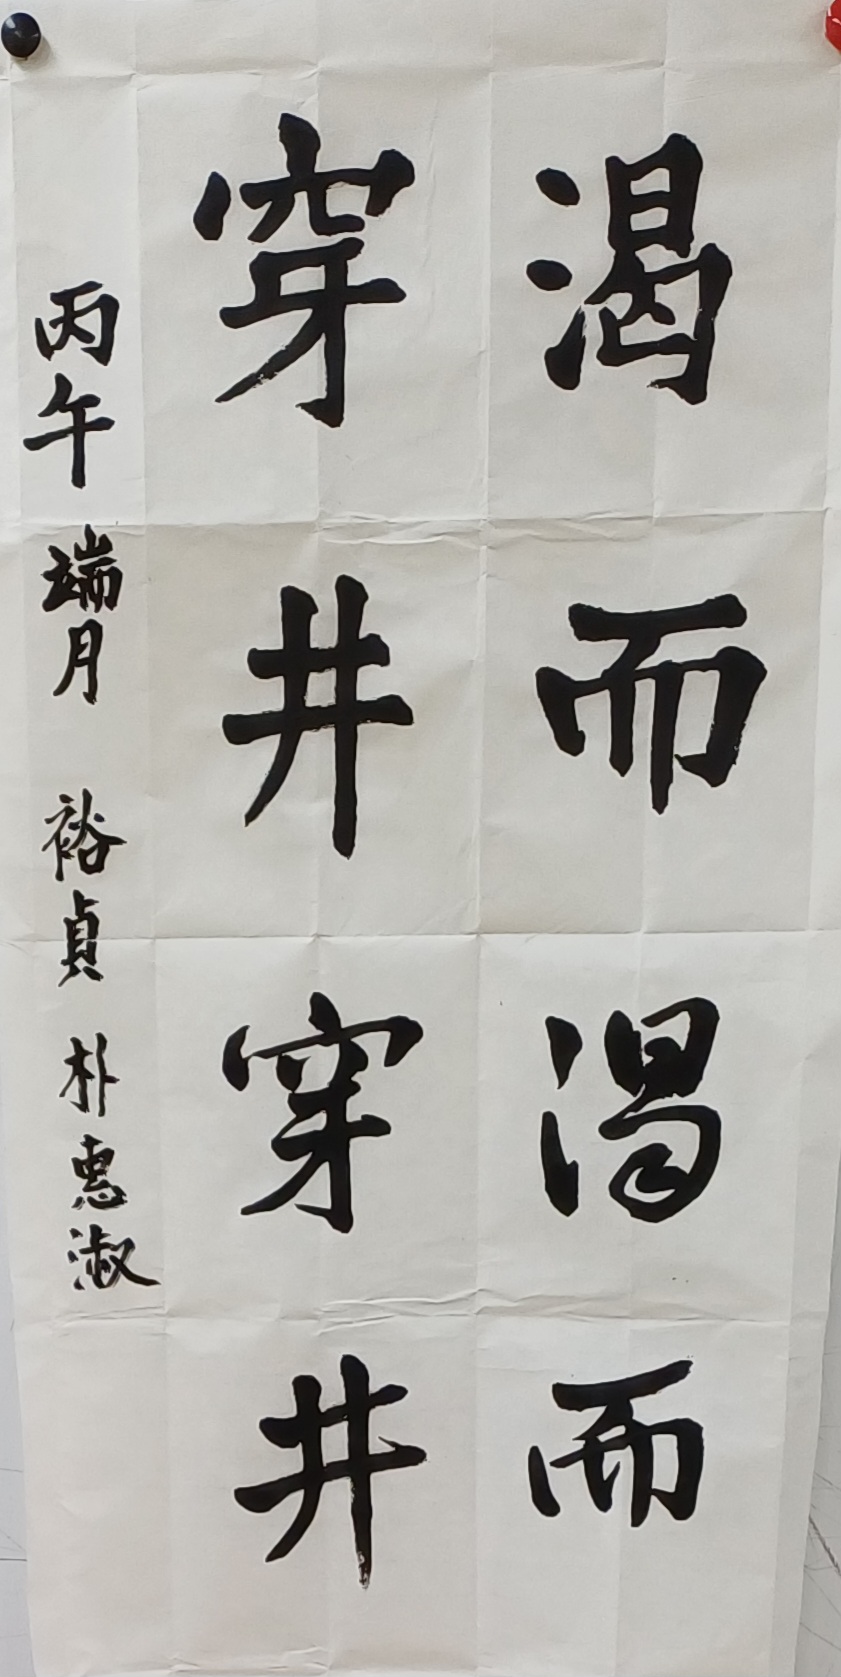 渴而渴而
穿井穿井
丙午 端月 裕貞 朴惠淑